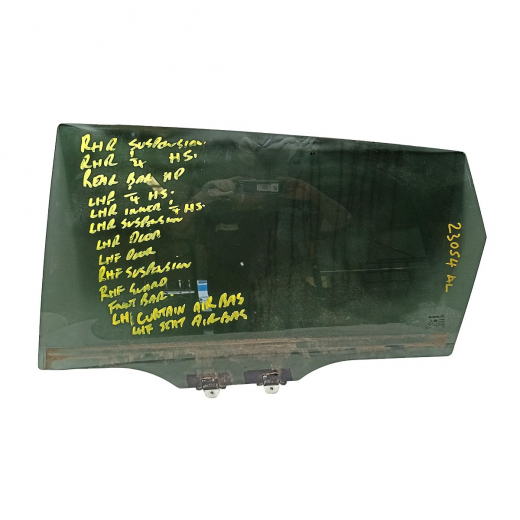 RHR SUSPENSION.
RHR ¼ HS.
REAR BAR HD
LHR ¼ HS.
LHR INNER ¼ HS.
LHR SUSPENSION
LHR DOOR
LHF DOOR
RHF SUSPENSION
RHF GUARD
FRONT BAR
LH CURTAIN AIR BAG
LHF SEAT AIR BAG
23054 AL